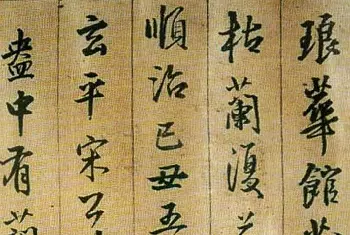 琅華館
枯蘭復
順治己丑五
玄平宋
盎中有